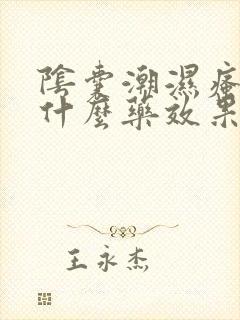 陰囊潮濕瘙
什麼藥效果
王永杰